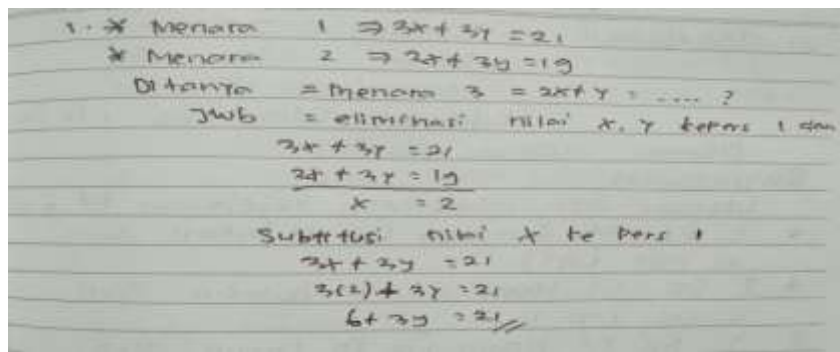 1. * Menara 1 ⇒ 3x + 3y = 21
* Menara 2 ⇒ 2x + 3y = 19
Ditanya = Menara 3 = 2x + y = ..... ?
Jwb = eliminasi nilai x, y ke pers 1 dan
3x + 3y = 21
2x + 3y = 19
x = 2
Subtitusi nilai x ke pers 1
3x + 3y = 21
3(2) + 3y = 21
6 + 3y = 21 //